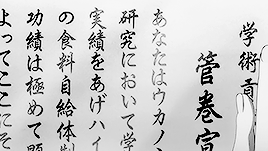 学術
管巻
あなたはウカノ
研究において学
実績をあげハイ
の食料自給体制
功績は極めて
よってここにそ